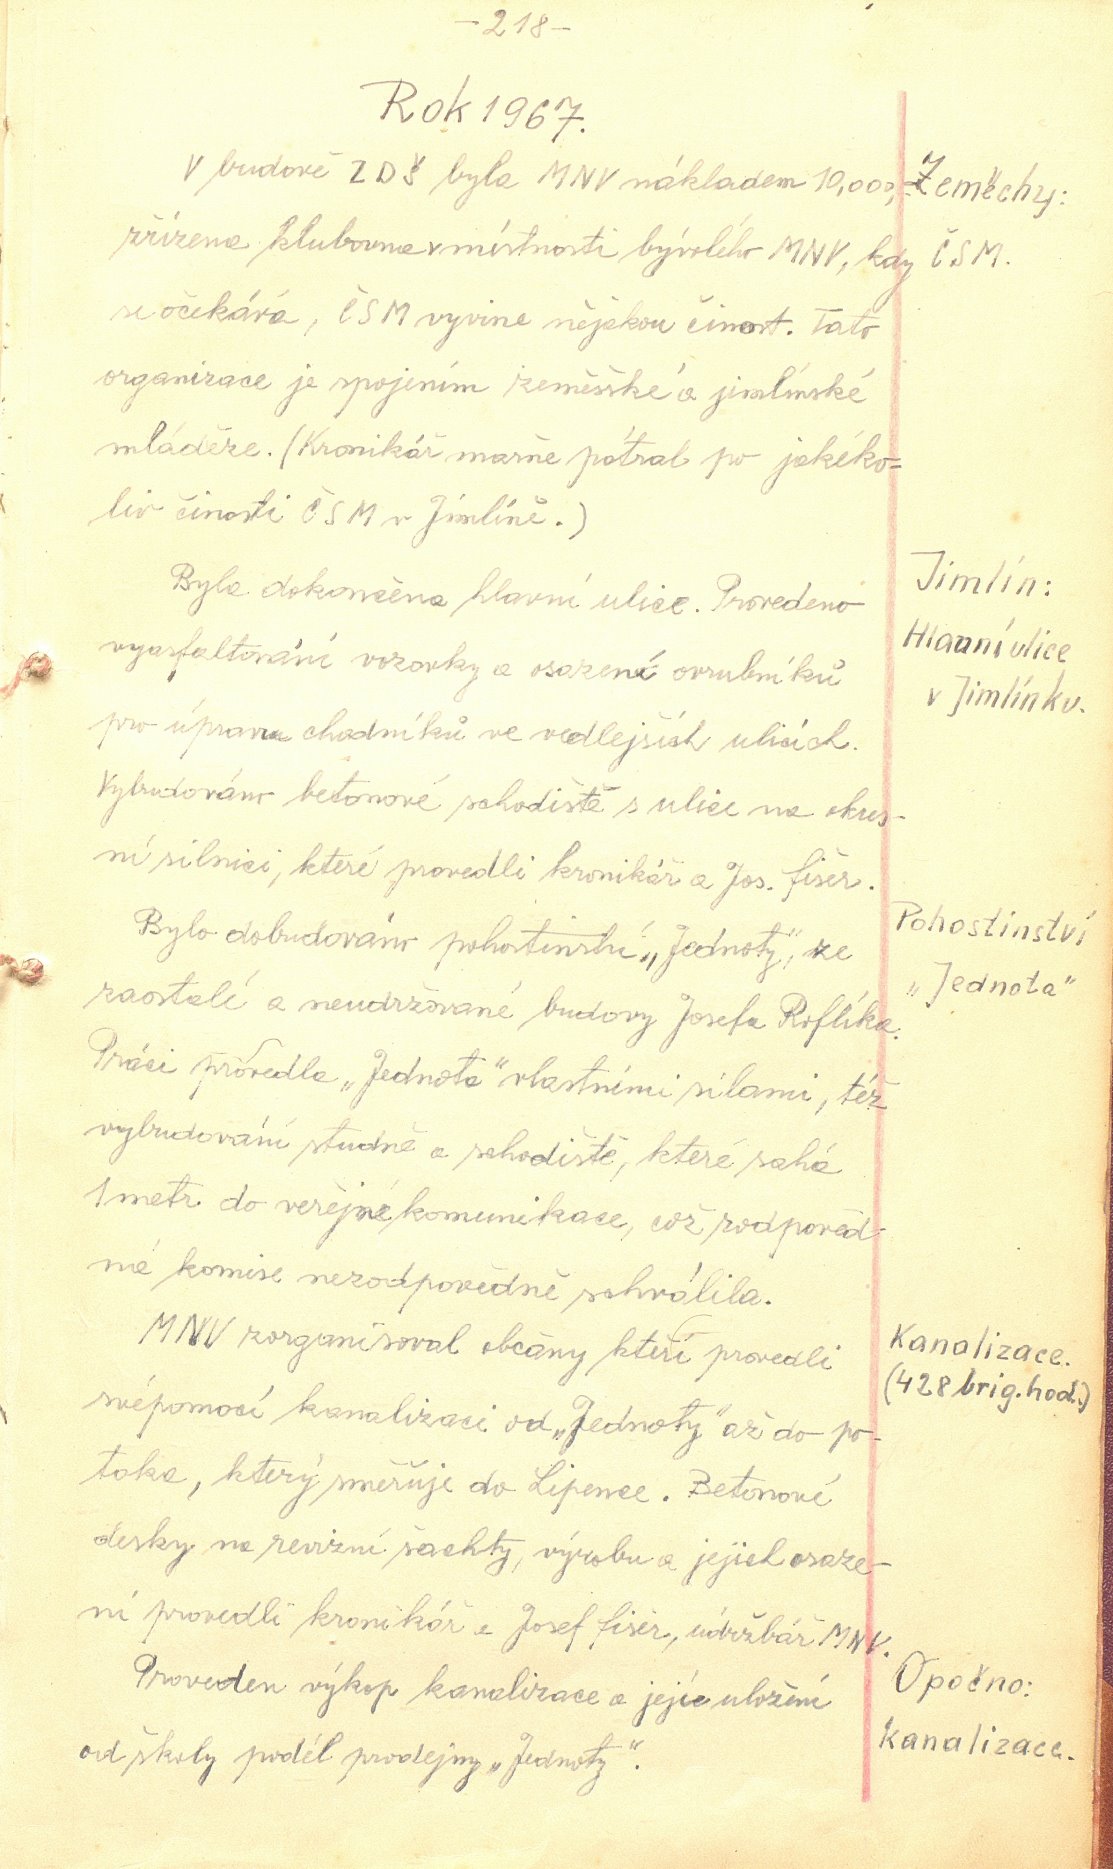 -218-
Rok 1967.
V budově ZDŠ byla MNV nákladem 10,000,-
Zeměchy:
zřízena klubovna v místnosti bývalého MNV, kdy
ČSM.
se očekává, ČSM vyvine nějakou činost. Tato
organizace je spojením zeměšské a jimlínské
mláděže. (Kronikář marně pátral po jakéko-
liv činosti ČSM v Jimlíně.)
Jimlín:
Byla dokončena hlavní ulice. Provedeno
Hlavní ulice
vyasfaltování vozovky a osazení ovrubníků
v Jimlínku.
pro úpravu chodníků ve vedlejších ulicích.
Vybudováno betonové schodiště s ulice na okres-
ní silnici, které provedli kronikář a Jos. fišer.
Pohostinství
Bylo dobudováno pohostinství „Jednoty", ze
„Jednota"
zaostalé a neudržované budovy Josefa Roflíka.
Práci provedla „Jednota" vlastními silami, též
vybudování studně a schodiště, které sahá
1 metr do veřejné komunikace, což zodpověd-
ná komise nezodpovědně schválila.
MNV zorganisoval občany kteří provedli
Kanalizace.
(428 brig. hod.)
svépomocí kanalizaci od „Jednoty" až do po-
toka, který směřuje do Lipence. Betonové
desky na revizní šachty, výrobu a jejich osaze-
ní provedli kronikář a Josef fišer, údržbář MNV.
Opočno:
Proveden výkop kanalizace a jejíc uložení
kanalizace.
od školy podél prodejny „Jednoty".